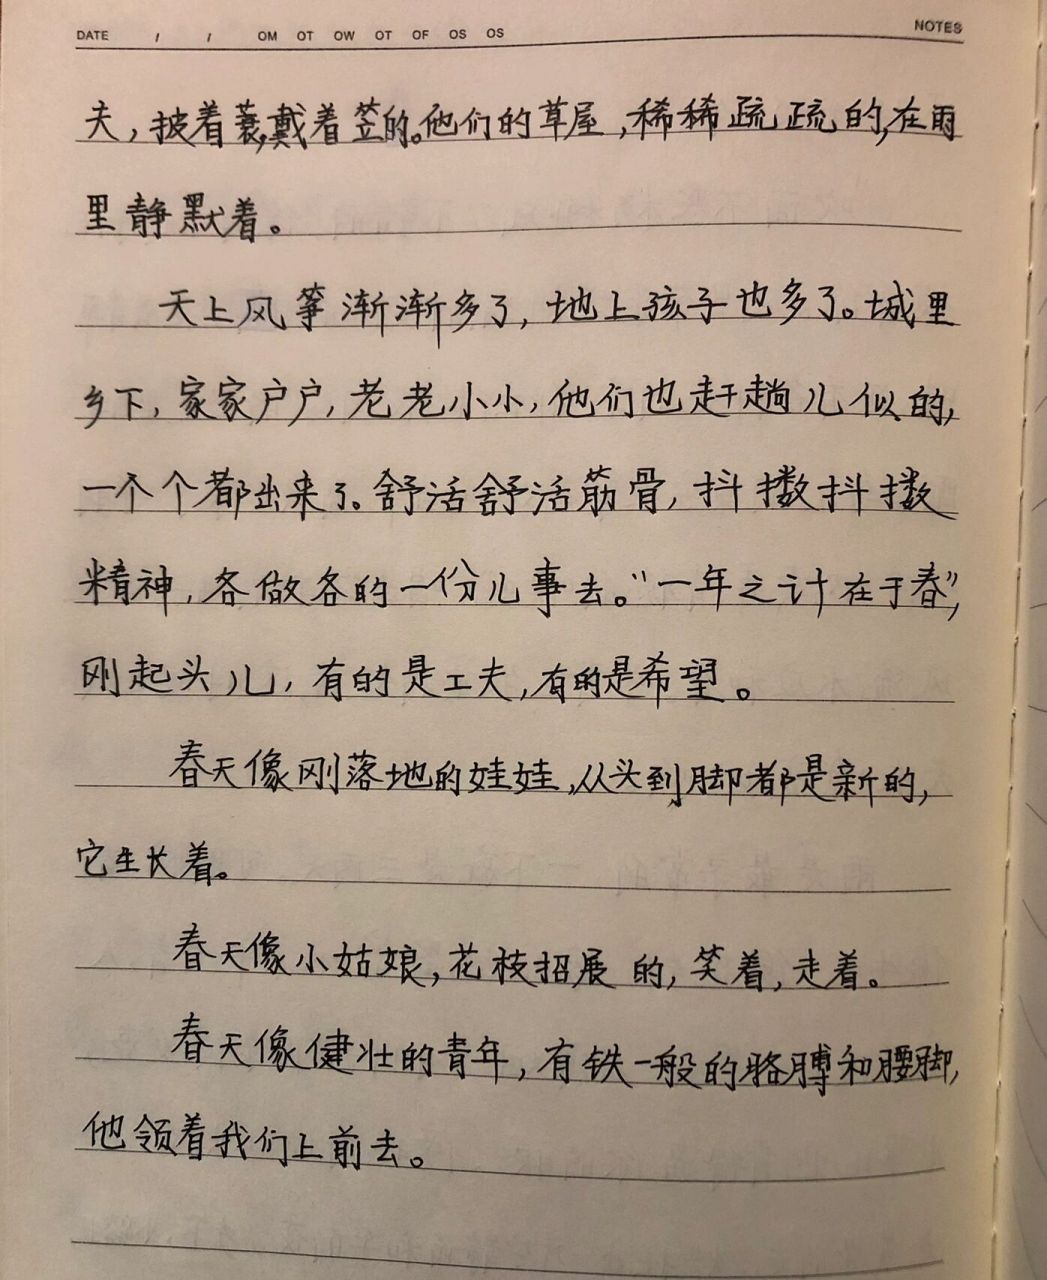 DATE / / OM OT OW OT OF OS OS NOTES
夫，披着蓑，戴着笠的。他们的草屋，稀稀疏疏的，在雨
里静默着。
天上风筝渐渐多了，地上孩子也多了。城里
乡下，家家户户，老老小小，他们也赶趟儿似的，
一个个都出来了。舒活舒活筋骨，抖擞抖擞
精神，各做各的一份儿事去。“一年之计在于春”，
刚起头儿，有的是工夫，有的是希望。
春天像刚落地的娃娃，从头到脚都是新的，
它生长着。
春天像小姑娘，花枝招展的，笑着，走着。
春天像健壮的青年，有铁一般的胳膊和腰脚，
他领着我们上前去。